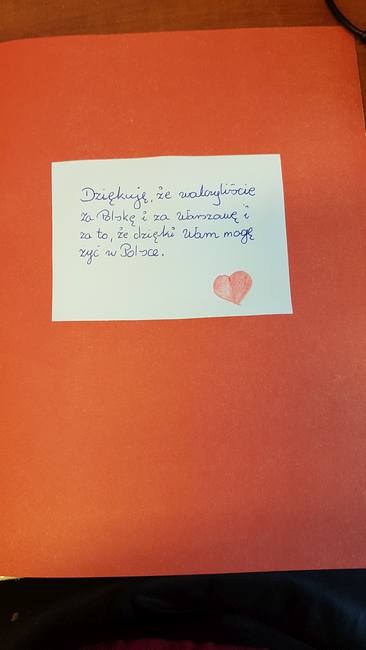 Dziękuję, że walczyliście
za Polskę i za Warszawę i
za to, że dzięki Wam mogę
żyć w Polsce.